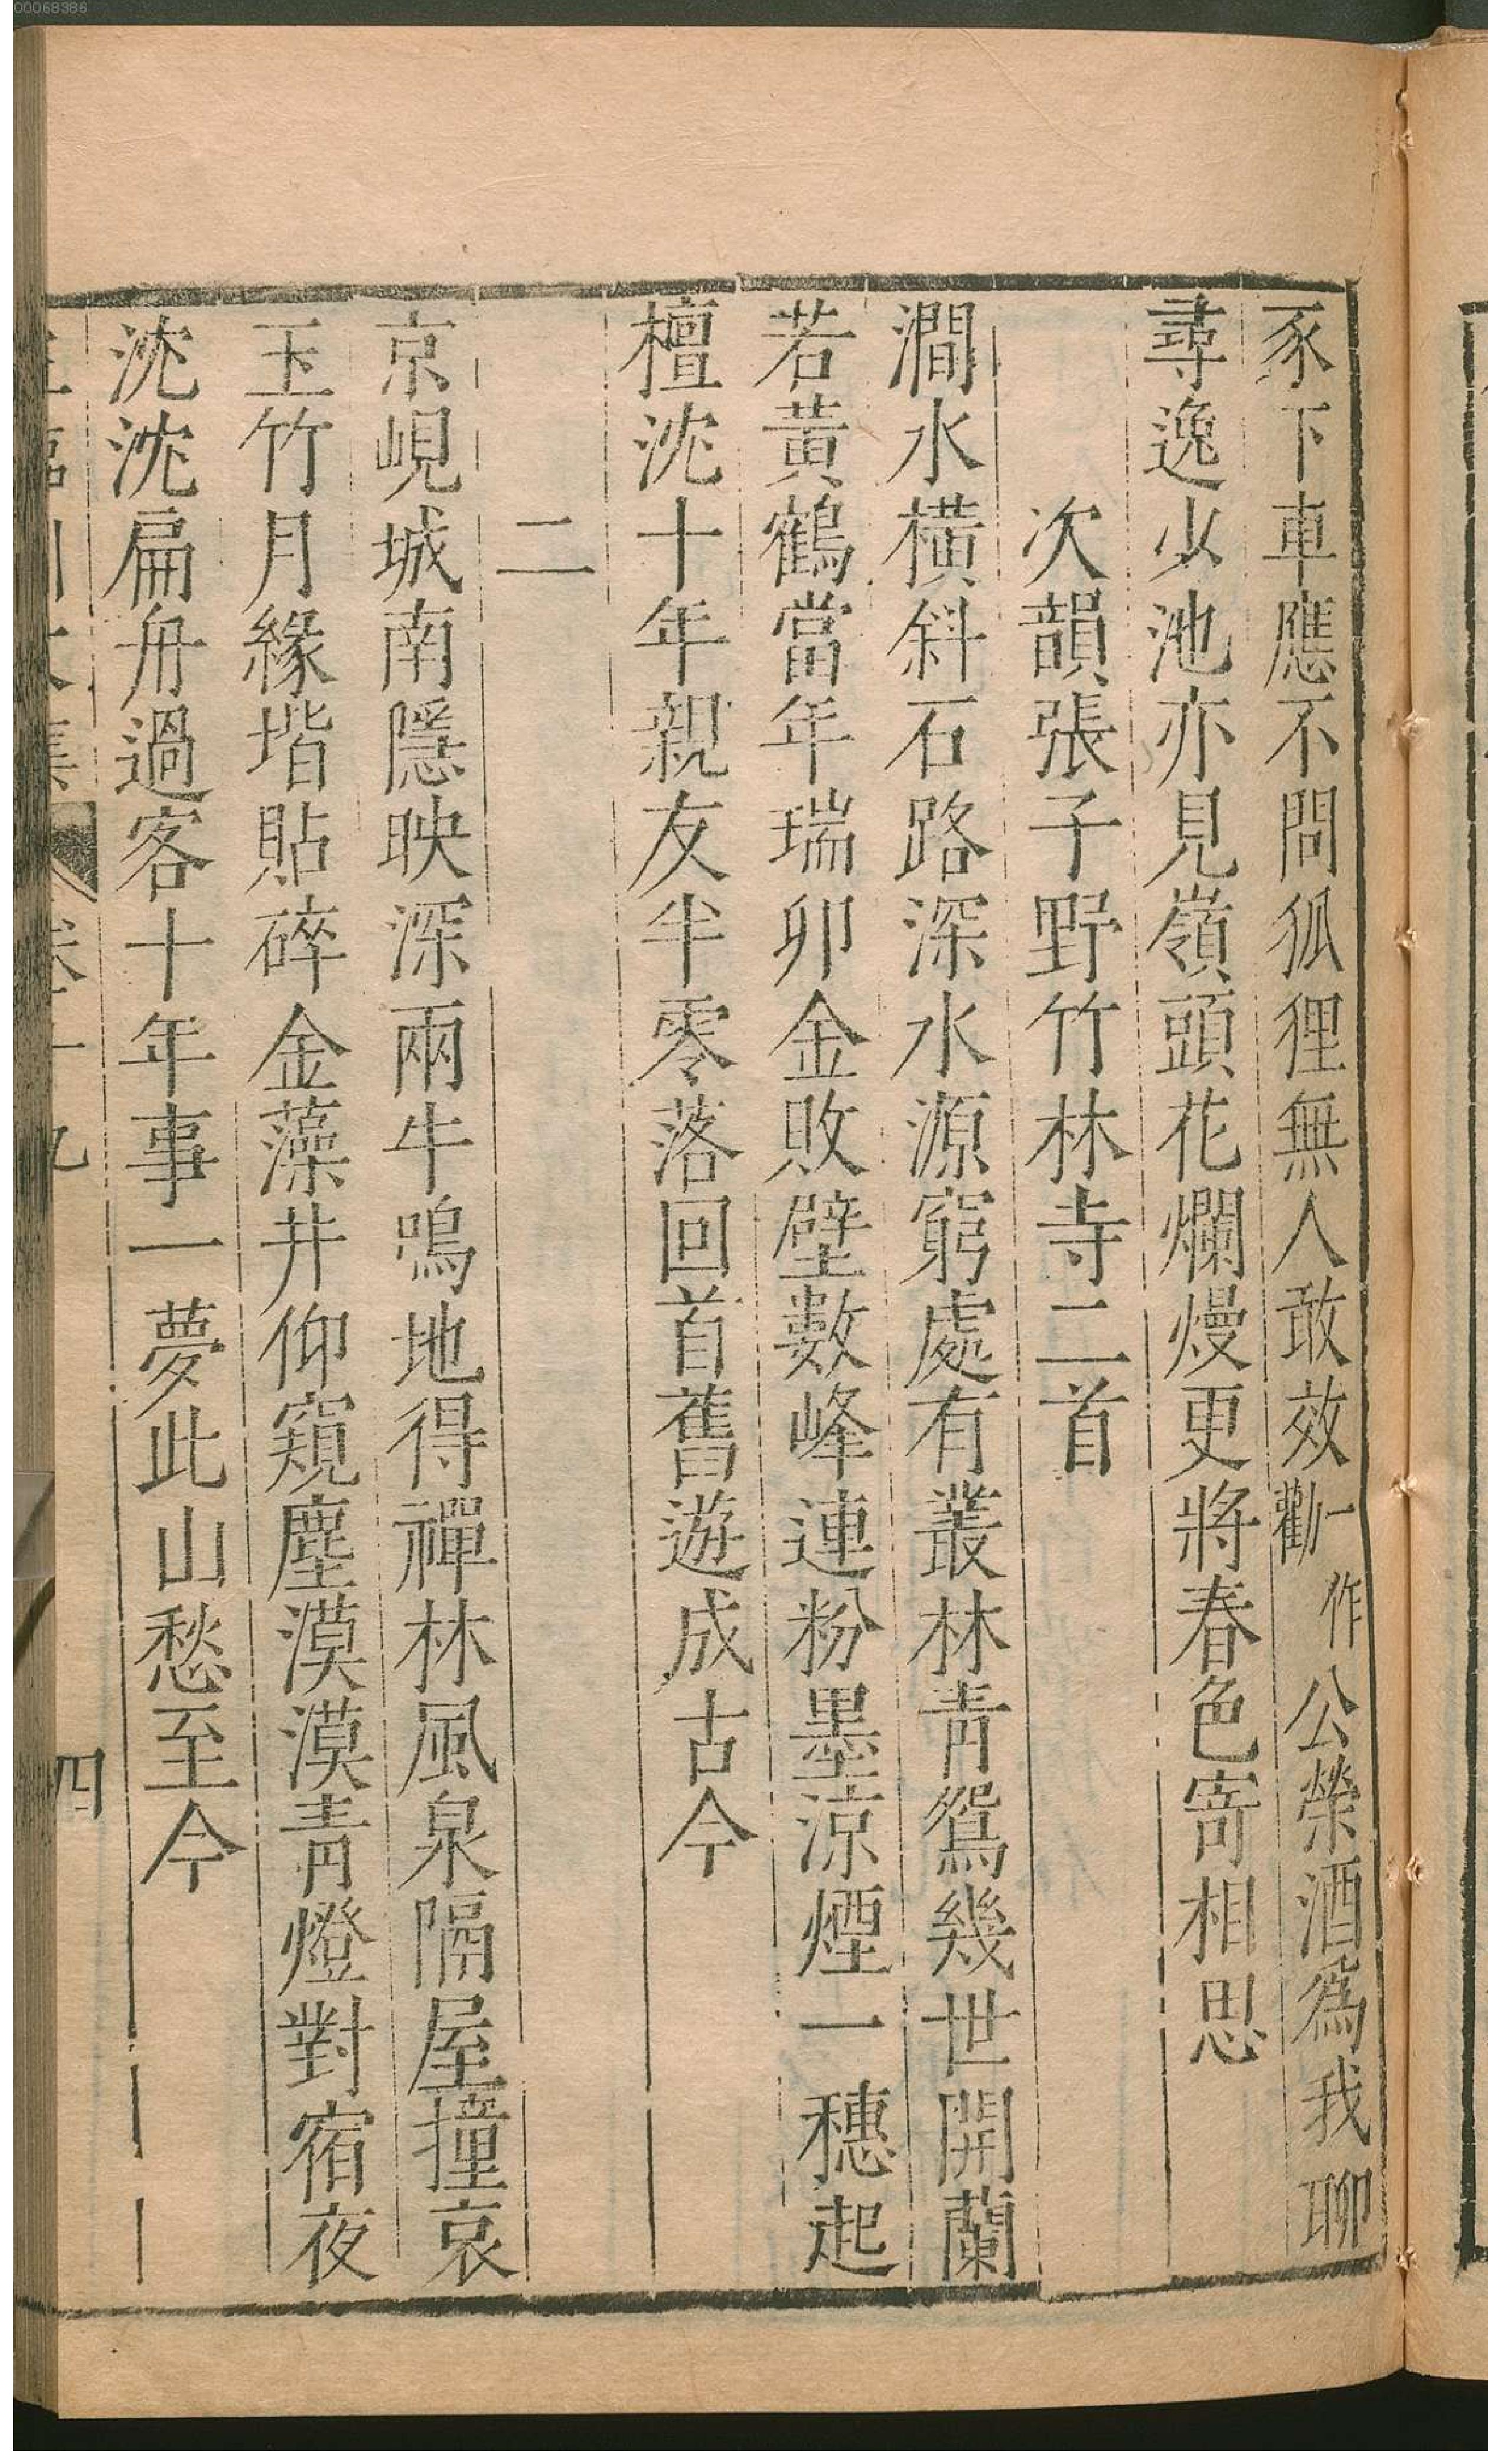 00068386
豕下車應不問狐狸無人敢效一作勸公榮酒為我聊
尋逸少池亦見嶺頭花爛熳更將春色寄相思
次韻張子野竹林寺二首
澗水橫斜石路深水源窮處有叢林青鴛幾世開蘭
若黃鶴當年瑞卯金敗壁數峰連粉墨涼煙一穗起
檀沈十年親友半零落回首舊遊成古今
二
京峴城南隱映深兩牛鳴地得禪林風泉隔屋撞哀
玉竹月緣堦貼碎金藻井仰窺塵漠漠青燈對宿夜
沈沈扁舟過客十年事一夢此山愁至今
四